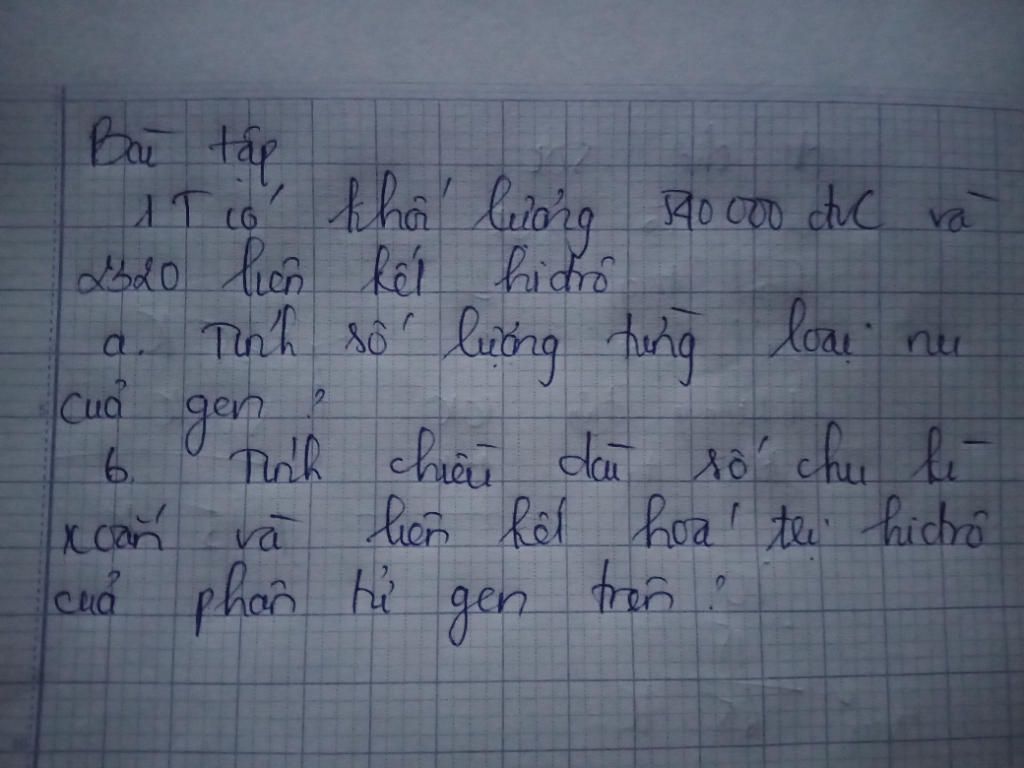 Bài tập
1 T có khối lượng 540 000 đvC và
2320 liên kết hidrô
a. Tính số lượng từng loại nu
của gen ?
b. Tính chiều dài số chu kì
xoắn và liên kết hoá trị hidrô
của phân tử gen trên ?